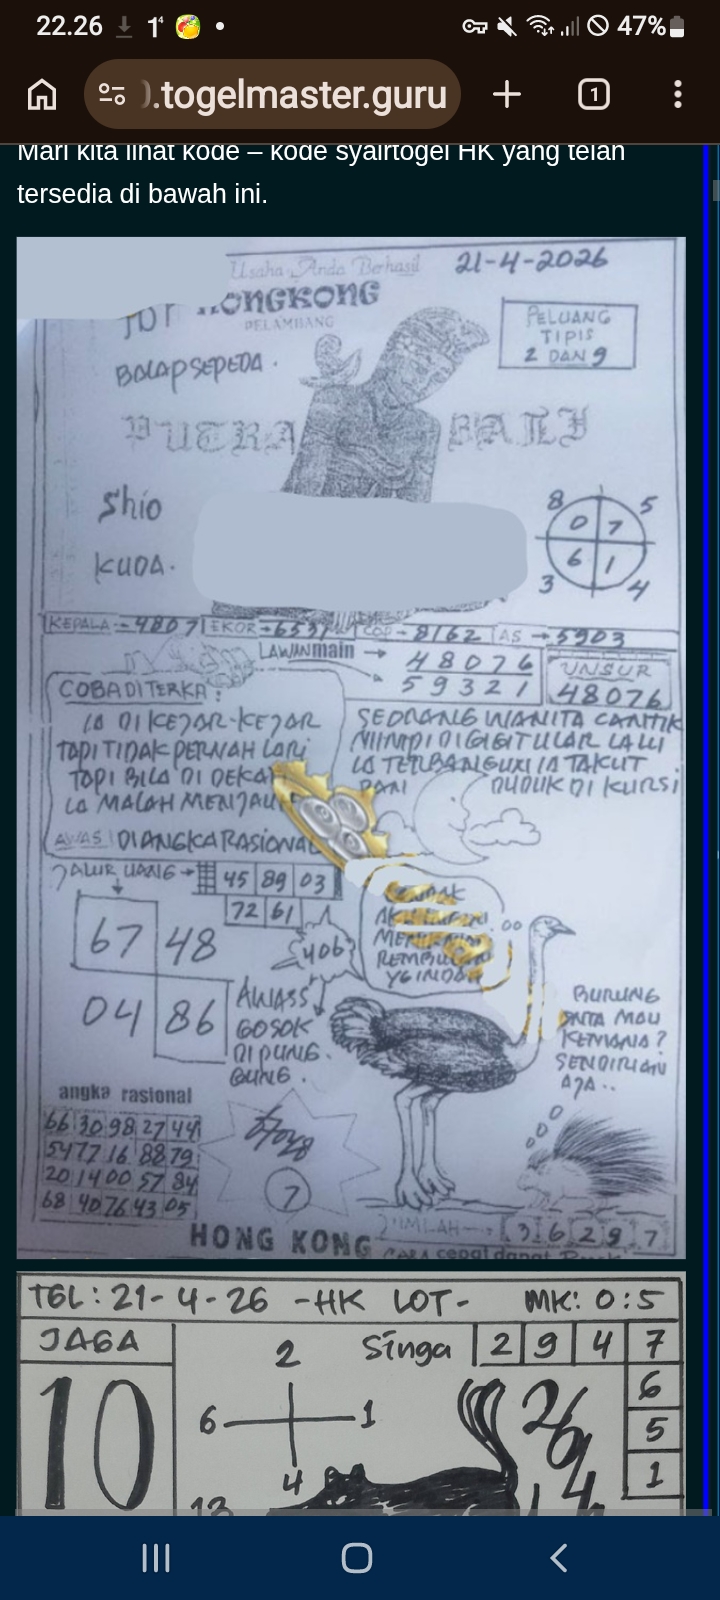 22.26
47%
.togelmaster.guru
1
Mari kita lihat kode – kode syairtogel HK yang telah
tersedia di bawah ini.
Usaha Anda Berhasil
21-4-2026
HONGKONG
PELAMBANG
PELUANG
TIPIS
2 DAN 9
BALAPSEPEDA.
PUTRA BALI
Shio
KUDA.
8 5
0 7
6 1
3 4
KEPALA 4807 EKOR 6531 COP 8162 AS 5903
LAWINmain
48076
59321
UNSUR
48076
COBA DITERKA:
IA DI KEJAR-KEJAR
TAPI TIDAK PERNAH LARI
TAPI BILA DI DEKA
IA MALAH MENJAU
AWAS! DIANGKA RASIONAL
SEORANG WANITA CANTIK
NIIMPI DIGIGIT ULAR LALU
IA TERBANGUN IA TAKUT
DAN DUDUK DI KURSI
JALUR UANG 45 89 03
72 61
67 48
04 86
406
AWASS
GOSOK
DI PUNG.
GUNG.
REMBULAN
YG INDAH
BURUNG
ONTA MAU
KEMANA?
SENDIRIAN
AJA..
angka rasional
66 30 98 27 44
54 77 16 88 79
20 14 00 57 84
68 40 76 43 05
7
JUMLAH 3 6 2 9 7
HONG KONG
TGL: 21-4-26 -HK LOT- MK: 0:5
JAGA
10
2
6 1
4
Singa 2 9 4 7
6
5
1